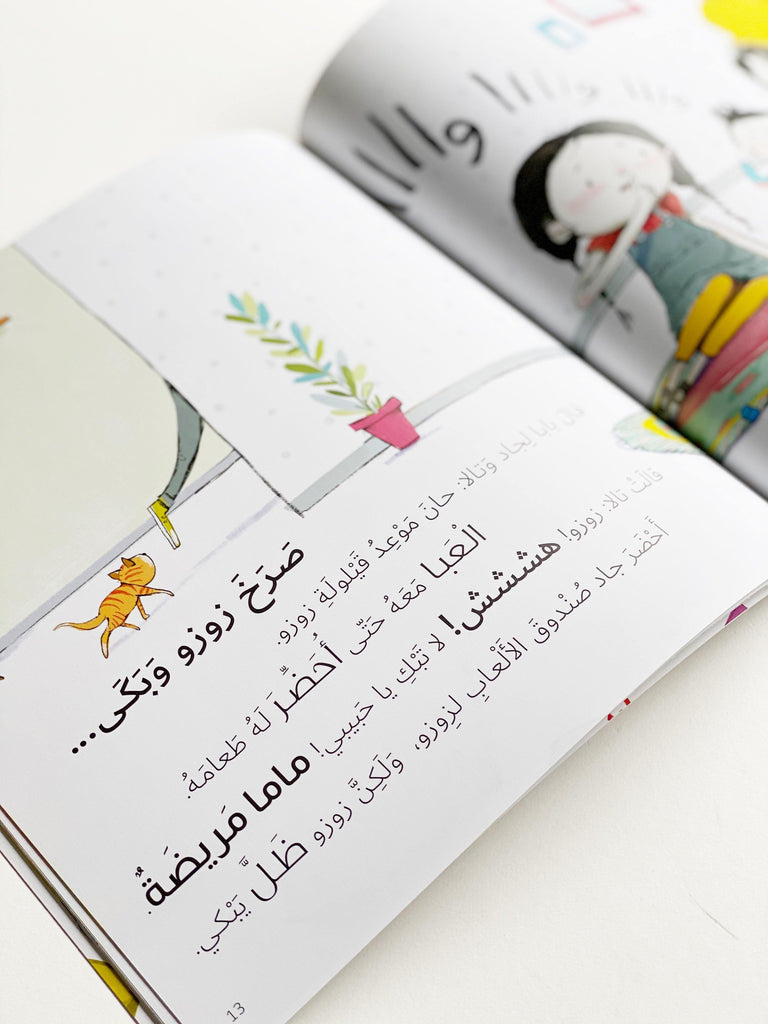 صَرَخَ زوزو وَبَكَى...
قالَ بابا لِجاد وَتالا: حانَ مَوْعِدُ قَيْلولَةِ زوزو.
الْعَبا مَعَهُ حَتّى أُحَضِّرَ لَهُ طَعامَهُ.
قالَتْ تالا: زوزو! هشششش! لا تَبْكِ يا حَبيبي! ماما مَريضَةٌ.
أَحْضَرَ جاد صُنْدوقَ الأَلْعابِ لِزوزو، وَلَكِنَّ زوزو ظَلَّ يَبْكي.
13